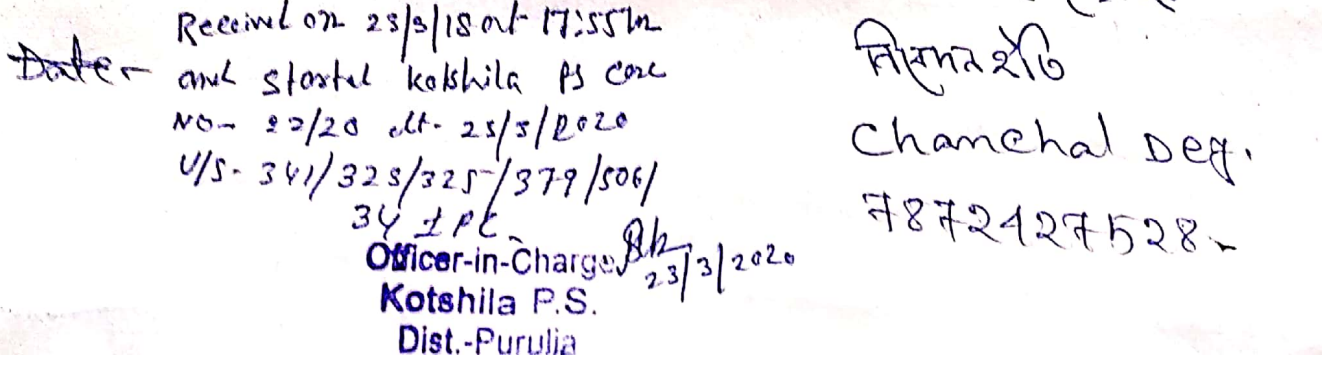 Received on 23/3/18 at 17:55 hr
Date- and started Kotshila PS case
NO- 22/20 dt- 23/3/2020
U/S- 341/323/325/379/506/
34 IPC
23/3/2020
Officer-in-Charge
Kotshila P.S.
Dist.-Purulia
Chanchal Dey.
7872427528-